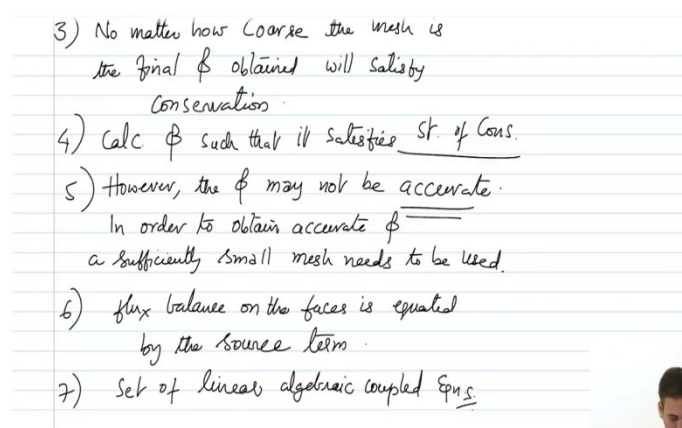 3) No matter how coarse the mesh is
the final ϕ obtained will satisfy
Conservation.
4) Calc ϕ such that it satisfies St. of Cons.
5) However, the ϕ may not be accurate.
In order to obtain accurate ϕ
a sufficiently small mesh needs to be used.
6) flux balance on the faces is equated
by the source term.
7) Set of linear algebraic coupled Eqns.